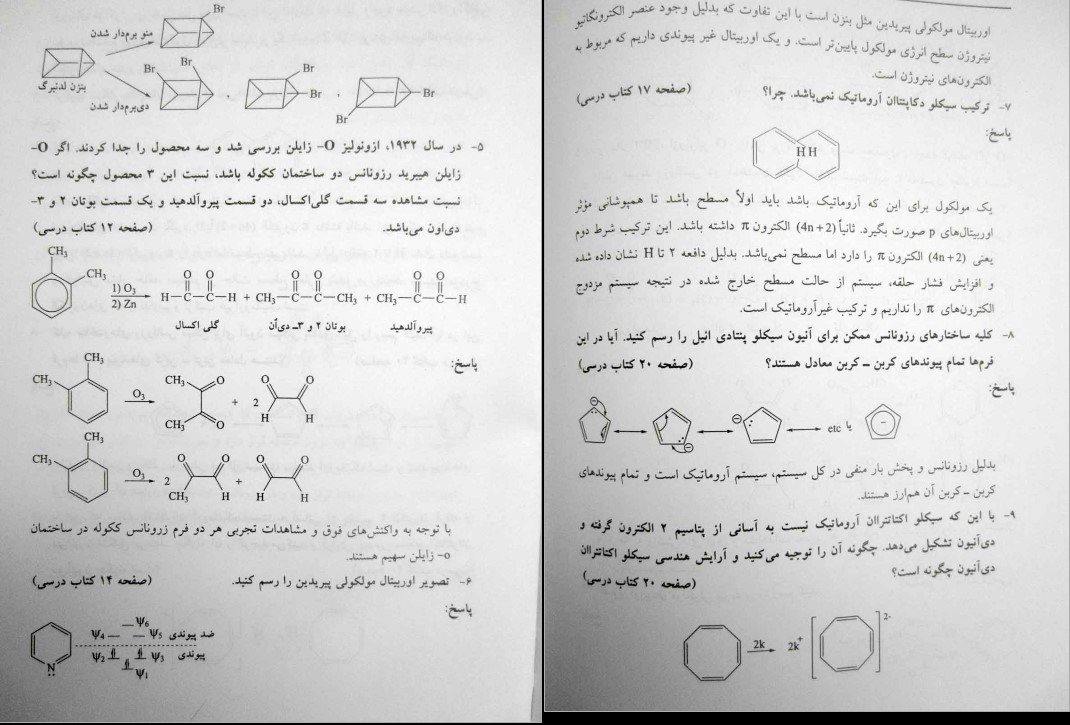 Br
منو برم‌دار شدن
Br
Br
Br
بنزن لدنبرگ
Br
Br
دی‌برم‌دار شدن
Br
۵- در سال ۱۹۳۲، ازونولیز O- زایلن بررسی شد و سه محصول را جدا کردند. اگر O-
زایلن هیبرید رزونانس دو ساختمان ککوله باشد، نسبت این ۳ محصول چگونه است؟
نسبت مشاهده سه قسمت گلی‌اکسال، دو قسمت پیروآلدهید و یک قسمت بوتان ۲ و ۳-
دی‌اون می‌باشد. (صفحه ۱۲ کتاب درسی)
CH₃
CH₃
1) O₃
2) Zn
O O
H—C—C—H + CH₃—C—C—CH₃ + CH₃—C—C—H
گلی اکسال
بوتان ۲ و ۳ـ دی‌آن
پیروآلدهید
پاسخ:
CH₃
CH₃
O₃
CH₃
CH₃
O
O
+ 2
O
O
H
H
CH₃
CH₃
O₃
2
O
O
CH₃
H
+
O
O
H
H
با توجه به واکنش‌های فوق و مشاهدات تجربی هر دو فرم زرونانس ککوله در ساختمان
o- زایلن سهیم هستند.
۶- تصویر اوربیتال مولکولی پیریدین را رسم کنید. (صفحه ۱۴ کتاب درسی)
پاسخ:
N
ψ₆
ψ₄ ψ₅ ضد پیوندی
ψ₂ ψ₃ پیوندی
ψ₁
اوربیتال مولکولی پیریدین مثل بنزن است با این تفاوت که بدلیل وجود عنصر الکترونگاتیو
نیتروژن سطح انرژی مولکول پایین‌تر است. و یک اوربیتال غیر پیوندی داریم که مربوط به
الکترون‌های نیتروژن است.
۷- ترکیب سیکلو دکاپنتاان آروماتیک نمی‌باشد. چرا؟ (صفحه ۱۷ کتاب درسی)
پاسخ:
H H
یک مولکول برای این که آروماتیک باشد باید اولاً مسطح باشد تا همپوشانی مؤثر
اوربیتال‌های p صورت بگیرد. ثانیاً (4n+2) الکترون π داشته باشد. این ترکیب شرط دوم
یعنی (4n+2) الکترون π را دارد اما مسطح نمی‌باشد. بدلیل دافعه ۲ تا H نشان داده شده
و افزایش فشار حلقه، سیستم از حالت مسطح خارج شده در نتیجه سیستم مزدوج
الکترون‌های π را نداریم و ترکیب غیرآروماتیک است.
۸- کلیه ساختارهای رزونانس ممکن برای آنیون سیکلو پنتادی انیل را رسم کنید. آیا در این
فرم‌ها تمام پیوندهای کربن ـ کربن معادل هستند؟ (صفحه ۲۰ کتاب درسی)
پاسخ:
etc یا
بدلیل رزونانس و پخش بار منفی در کل سیستم، سیستم آروماتیک است و تمام پیوندهای
کربن ـ کربن آن هم‌ارز هستند.
۹- با این که سیکلو اکتاتتراان آروماتیک نیست به آسانی از پتاسیم ۲ الکترون گرفته و
دی‌آنیون تشکیل می‌دهد. چگونه آن را توجیه می‌کنید و آرایش هندسی سیکلو اکتاتتراان
دی‌آنیون چگونه است؟ (صفحه ۲۰ کتاب درسی)
2k 2k⁺ 2-